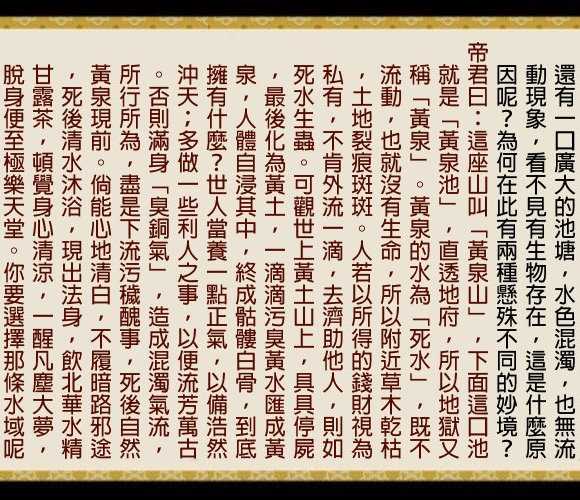 還有一口廣大的池塘，水色混濁，也無流
動現象，看不見有生物存在，這是什麼原
因呢？為何在此有兩種懸殊不同的妙境？
帝君曰：這座山叫「黃泉山」，下面這口池
就是「黃泉池」，直透地府，所以地獄又
稱「黃泉」。黃泉的水為「死水」，既不
流動，也就沒有生命，所以附近草木乾枯
，土地裂痕斑斑。人若以所得的錢財視為
私有，不肯外流一滴，去濟助他人，則如
死水生蟲。可觀世上黃土山上，具具停屍
，最後化為黃土，一滴滴污臭黃水匯成黃
泉，人體自浸其中，終成骷髏白骨，到底
擁有什麼？世人當養一點正氣，以備浩然
沖天；多做一些利人之事，以便流芳萬古
。否則滿身「臭銅氣」，造成混濁氣流，
所行所為，盡是下流污穢醜事，死後自然
黃泉現前。倘能心地清白，不履暗路邪途
，死後清水沐浴，現出法身，飲北華水精
甘露茶，頓覺身心清涼，一醒凡塵大夢，
脫身便至極樂天堂。你要選擇那條水域呢